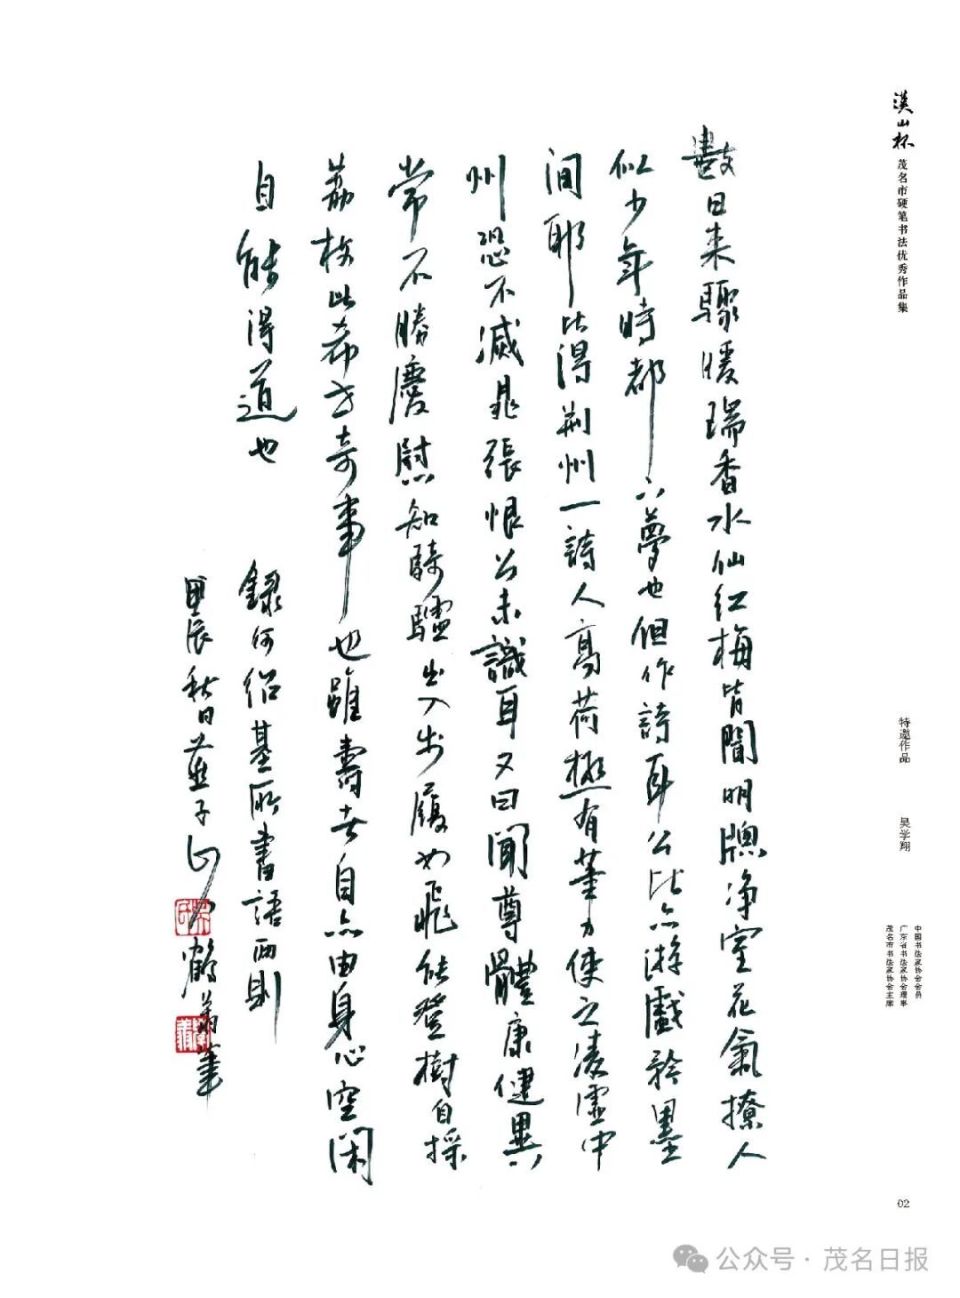 漢山杯 茂名市硬笔书法优秀作品集
特邀作品 吴学翔
中国书法家协会会员
广东省书法家协会理事
茂名市书法家协会主席
數日来驟暖瑞香水仙红梅皆開明牕净室花氣撩人
似少年時都下夢也但作詩耳公比亦游戲翰墨
间耶比得荆州一詩人高荷極有筆力使之凌虚中
州恐不減晁張恨公未識耳又曰聞尊體康健異
常不勝慶慰知騎驢出入步履如飛能登樹自採
荔枝此希世奇事也雖壽考自亦由身心空闲
自能得道也
錄何绍基所書語兩則
甲辰秋日燕子山人鶴翁筆
02
公众号·茂名日报